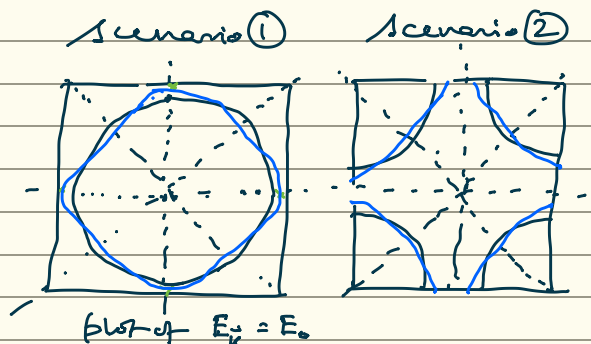 Scenario ①
Scenario ②
plot of E_k⃗ = E₀